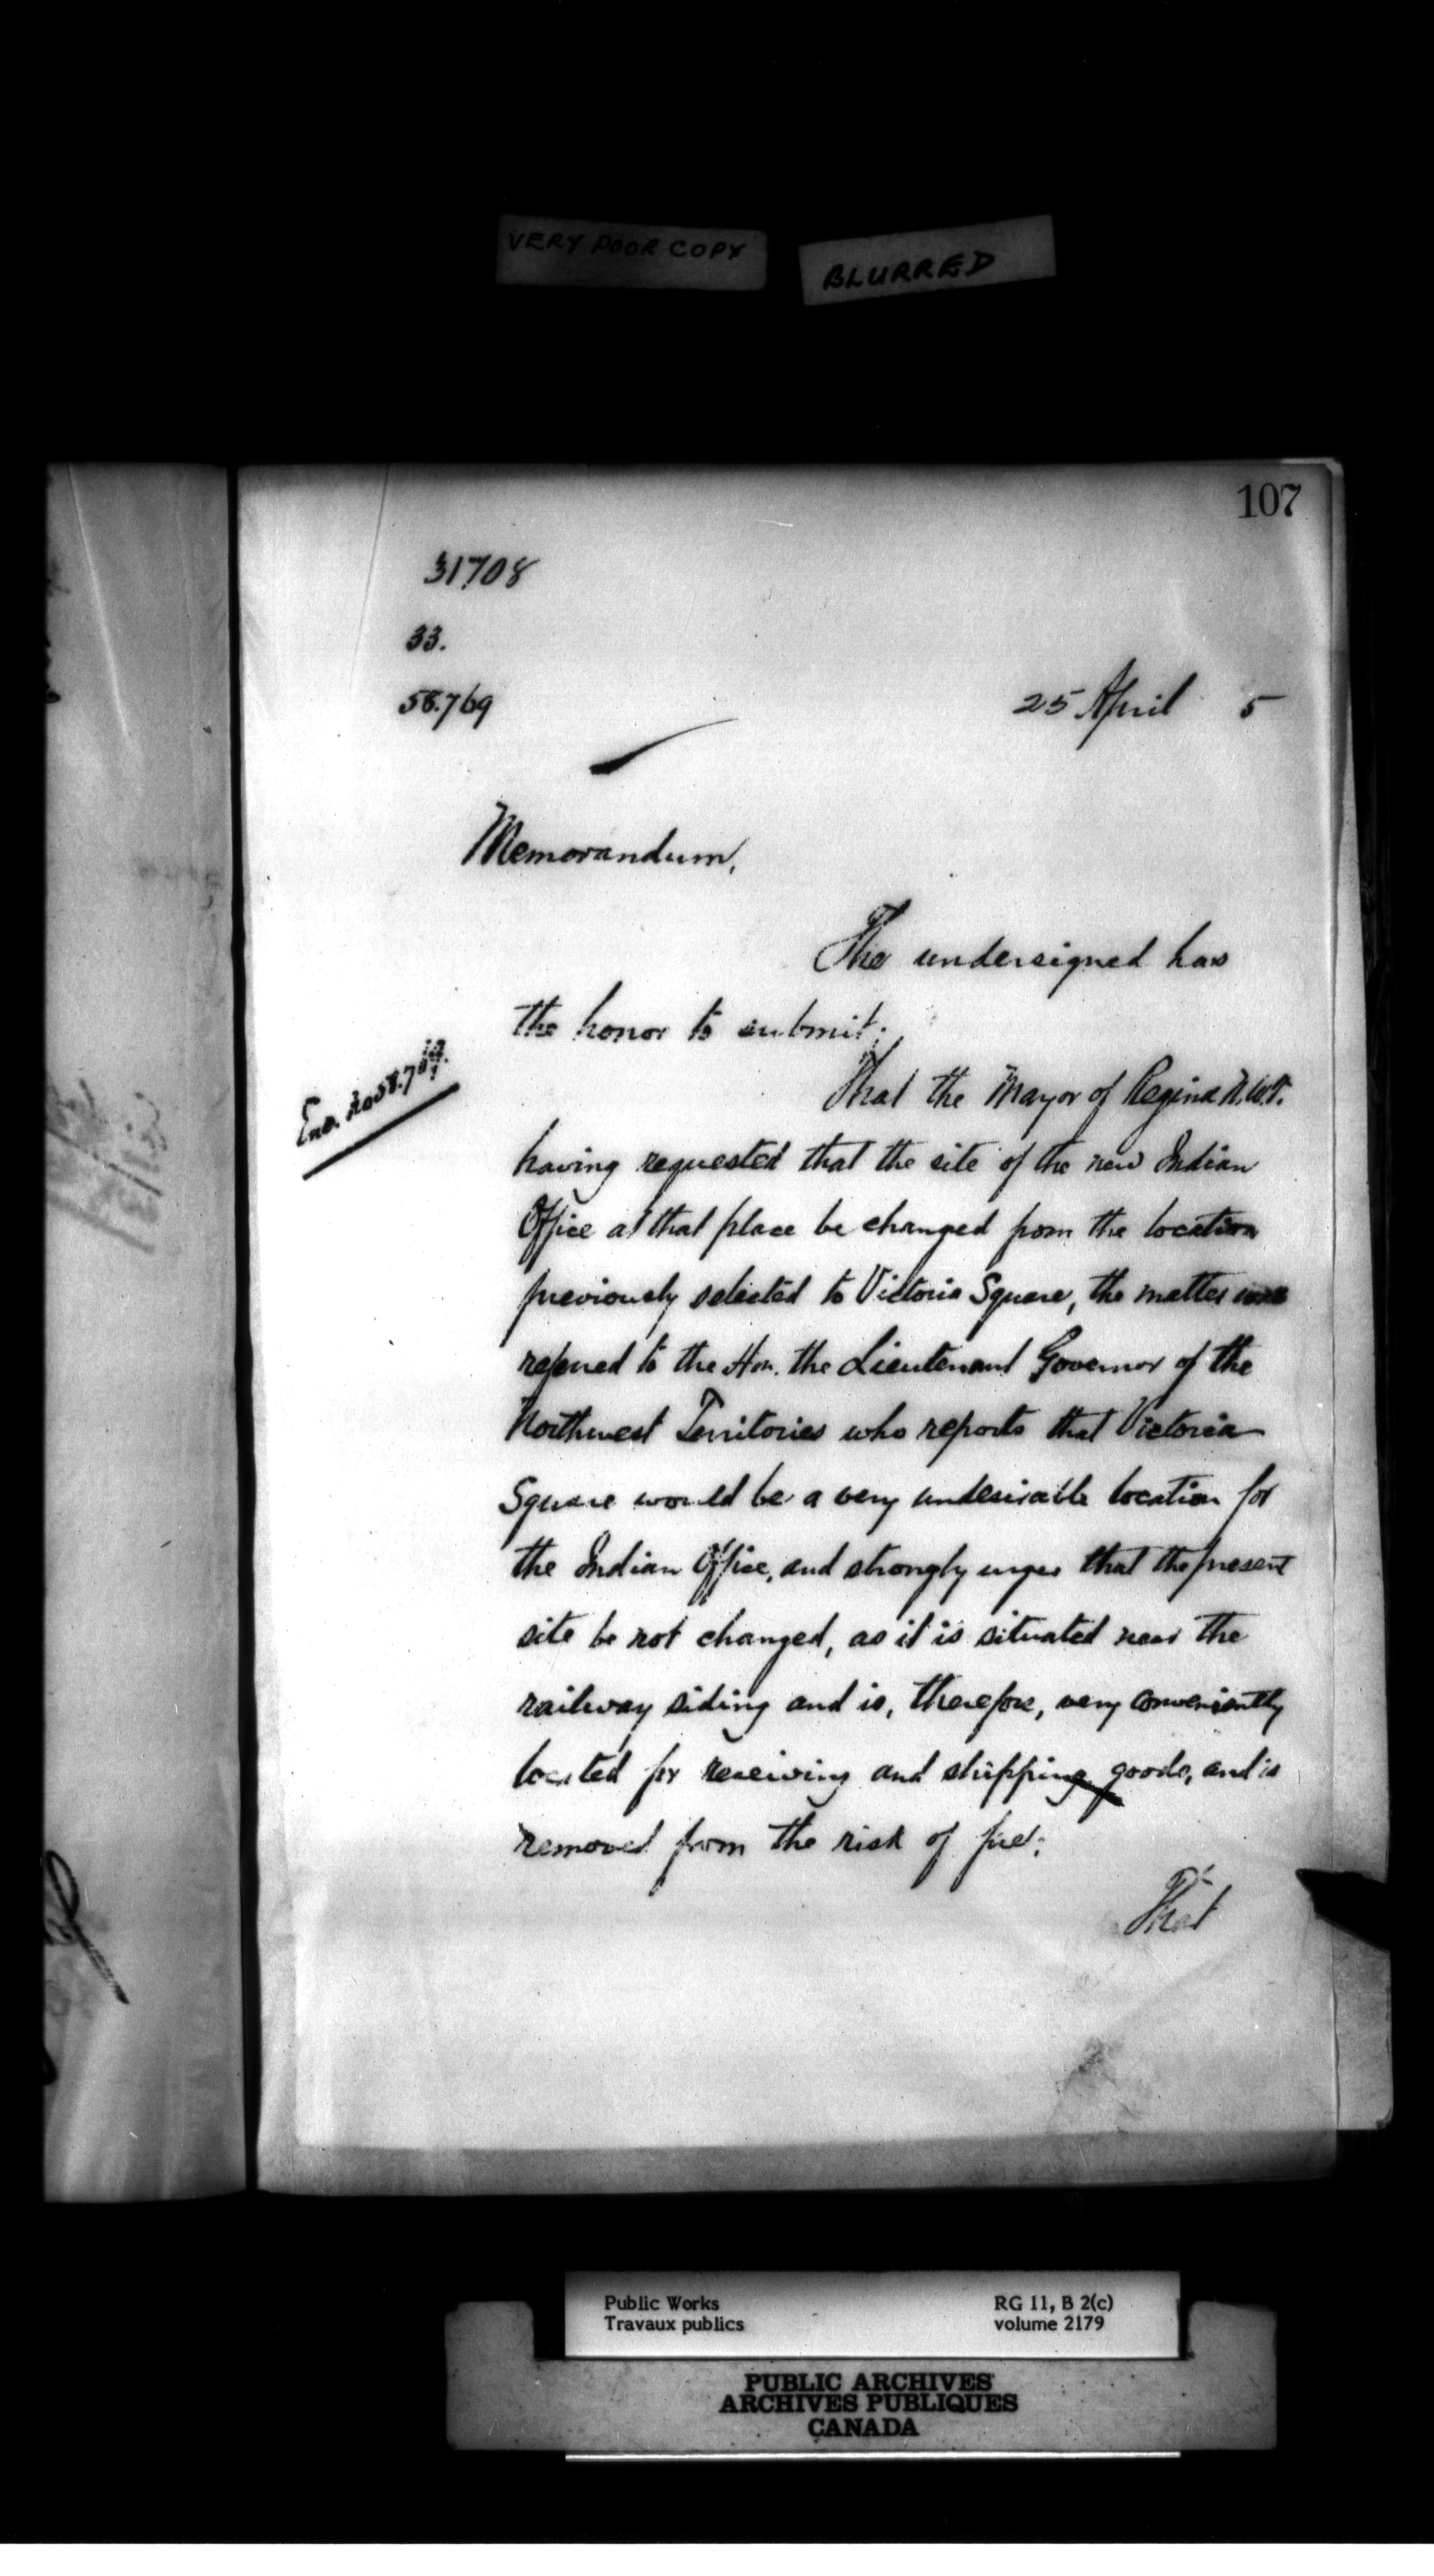 VERY POOR COPY
BLURRED
107
31708
33.
58.769
25 April 5
Memorandum,
The undersigned has
the honor to submit;
Enc. No 58.769.
That the Mayor of Regina N.W.T.
having requested that the site of the new Indian
Office at that place be changed from the location
previously selected to Victoria Square, the matter was
referred to the Hon. the Lieutenant Governor of the
Northwest Territories who reports that Victoria
Square would be a very undesirable location for
the Indian Office, and strongly urges that the present
site be not changed, as it is situated near the
railway siding and is, therefore, very conveniently
located for receiving and shipping goods, and is
removed from the risk of fire;
That
Public Works
Travaux publics
RG 11, B 2(c)
volume 2179
PUBLIC ARCHIVES
ARCHIVES PUBLIQUES
CANADA